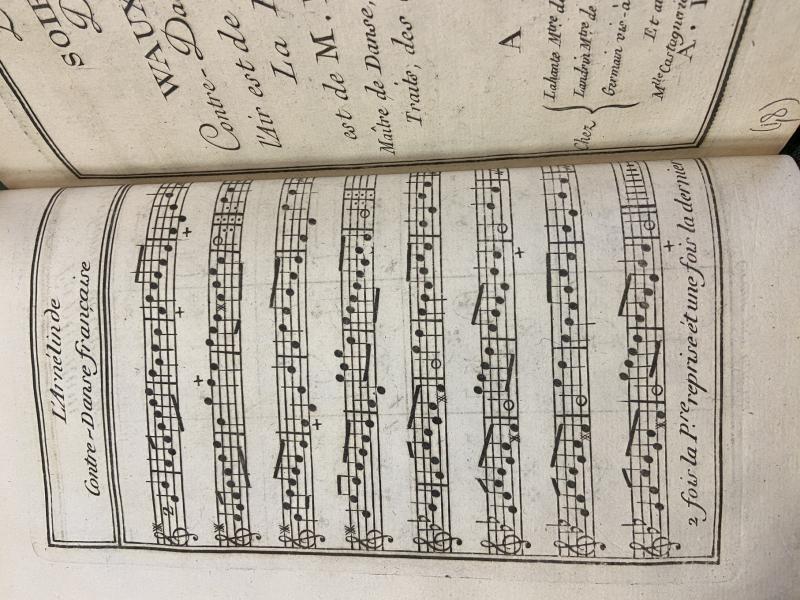 SOIR
WAUX
Contre-Da
l'Air est de
La
est de M.
Maître de Danse,
Traits, des
A
Chez
Lahante Mtre de
Landrin Mtre de
Germain vis-à
Et au
Mlle Castagnerie
A.
(18)
L'Amélinde
Contre-Danse française
2
2 fois la Pre. reprise et une fois la dernier